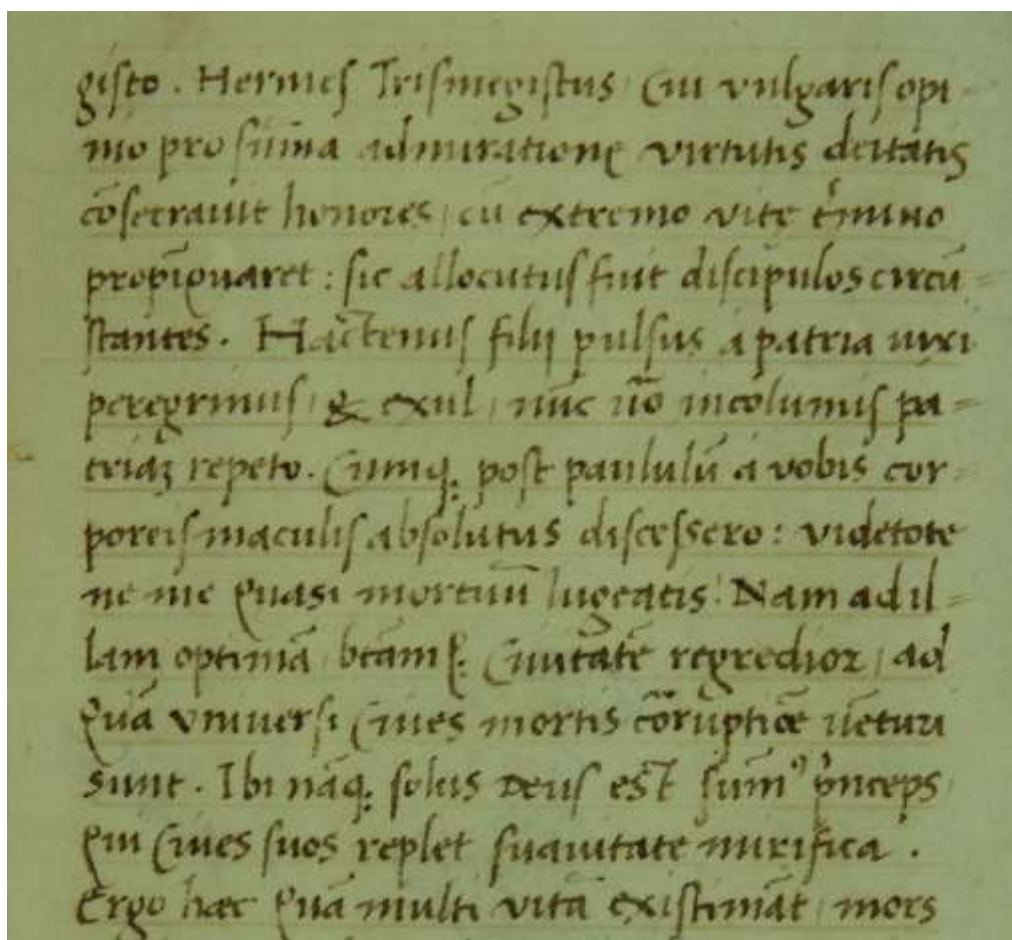 gisto . Hermes Trismegistus / Cui vulgaris opi-
nio pro sūma admiratione virtutis deitatis
cōsecrauit honores / cū extremo vitę t̉mino
propīquaret : sic allocutus fuit discipulos circū=
stantes . Hactenus filij pulsus á patria uixi
peregrinus / & exul / nūc ũo incolumis pa=
triaʒ repeto . Cumqꝫ post paululū á vobis cor-
poreis maculis absolutus discessero : videtote
ne me quasi mortuū lugeatis : Nam ad il=
lam optimā / btām qꝫ Ciuitatē regredior / ad
quā vniuersi Ciues mortis cōruptiōe uēturi
sunt . Ibi nāqꝫ solus Deus est sūmꝰ p̉nceps /
qui Ciues suos replet suauitate mirifica .
Ergo hæc quā multi vitā existimāt / mors